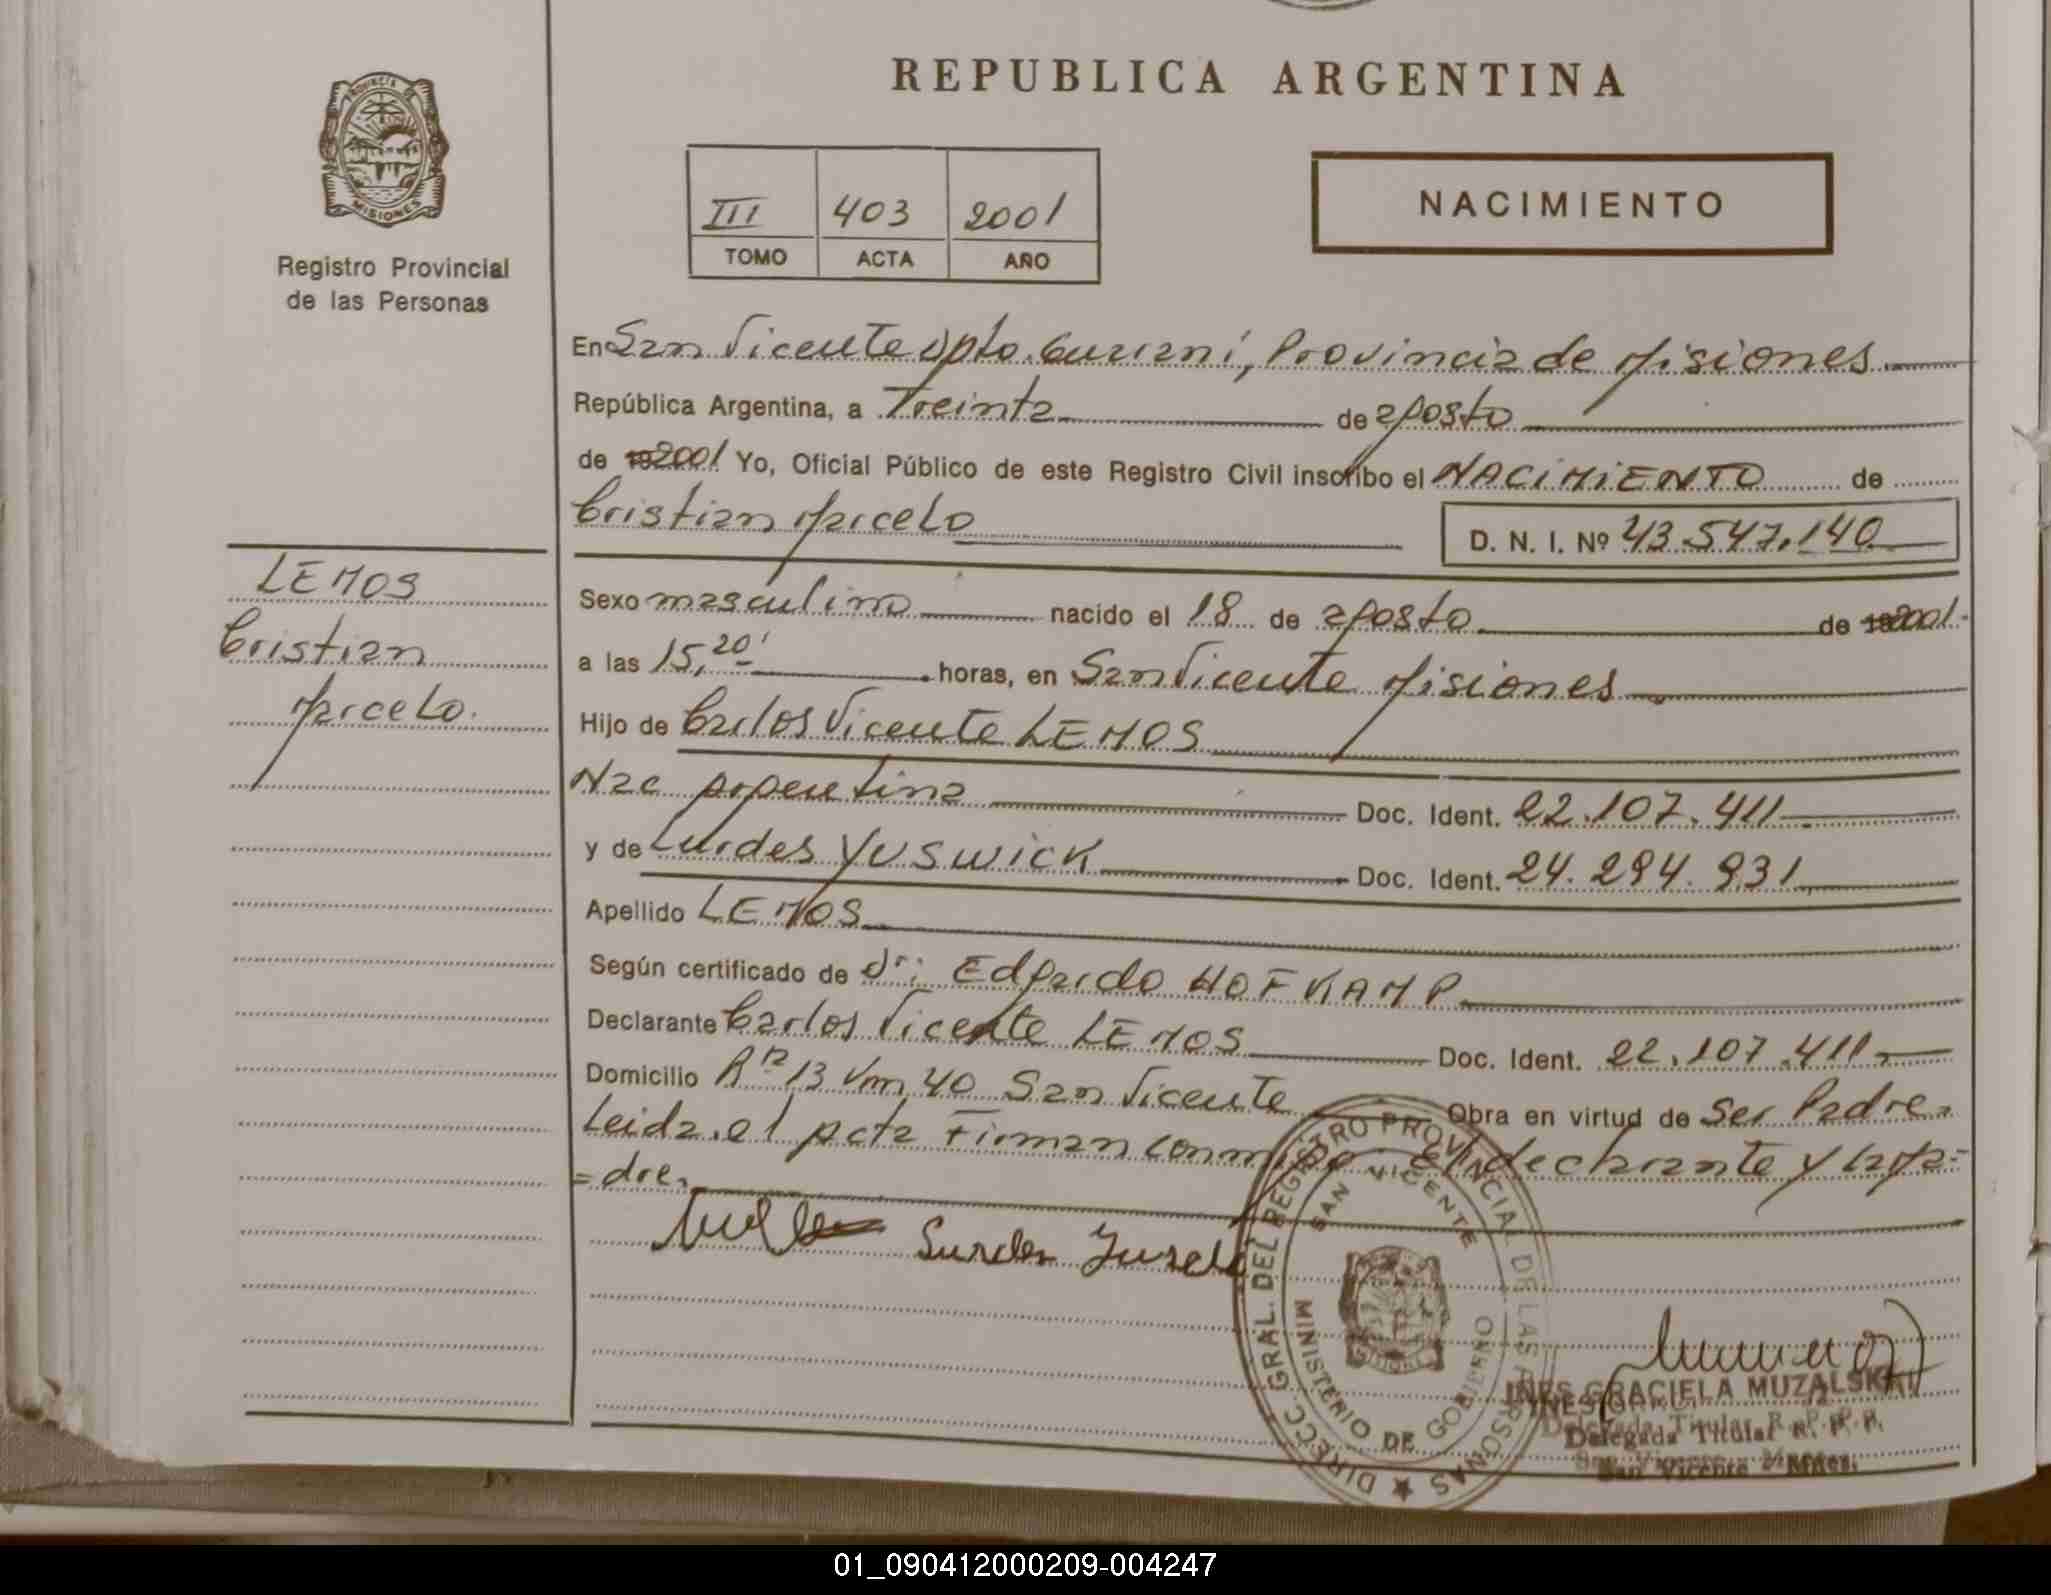 REPUBLICA ARGENTINA
PROVINCIA DE
MISIONES
Registro Provincial
de las Personas
III 403 2001
TOMO ACTA AÑO
NACIMIENTO
En San Vicente Dpto. Guarani, Provincia de Misiones
República Argentina, a Treinta de agosto
de 192001 Yo, Oficial Público de este Registro Civil inscribo el NACIMIENTO de
Cristian Marcelo
D. N. I. Nº 43.547.140
LEMOS
Cristian
Marcelo.
Sexo masculino nacido el 18 de agosto de 192001.
a las 15,20' horas, en San Vicente Misiones
Hijo de Carlos Vicente LEMOS
Nac Argentina Doc. Ident. 22.107.411
y de Lurdes YUSWICK Doc. Ident. 24.294.931
Apellido LEMOS
Según certificado de dr: Edgardo HOFKAMP
Declarante Carlos Vicente LEMOS Doc. Ident. 22.107.411
Domicilio Rta 13 Km 40 San Vicente Obra en virtud de ser Padre.
Leida el acta Firman conmigo el declarante y la Ma=
=dre.
Lurdes
DIRECC. GRAL. DEL REGISTRO PROVINCIAL DE LAS PERSONAS
SAN VICENTE
MINISTERIO DE GOBIERNO
INES GRACIELA MUZALSKI
Delegada Titular R. P. P.
San Vicente - Mnes.
01_090412000209-004247